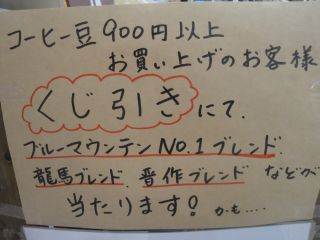 コーヒー豆900円以上
お買い上げのお客様
くじ引きにて.
ブルーマウンテンNO.1ブレンド.
龍馬ブレンド.晋作ブレンドなどが
当たります!かも....